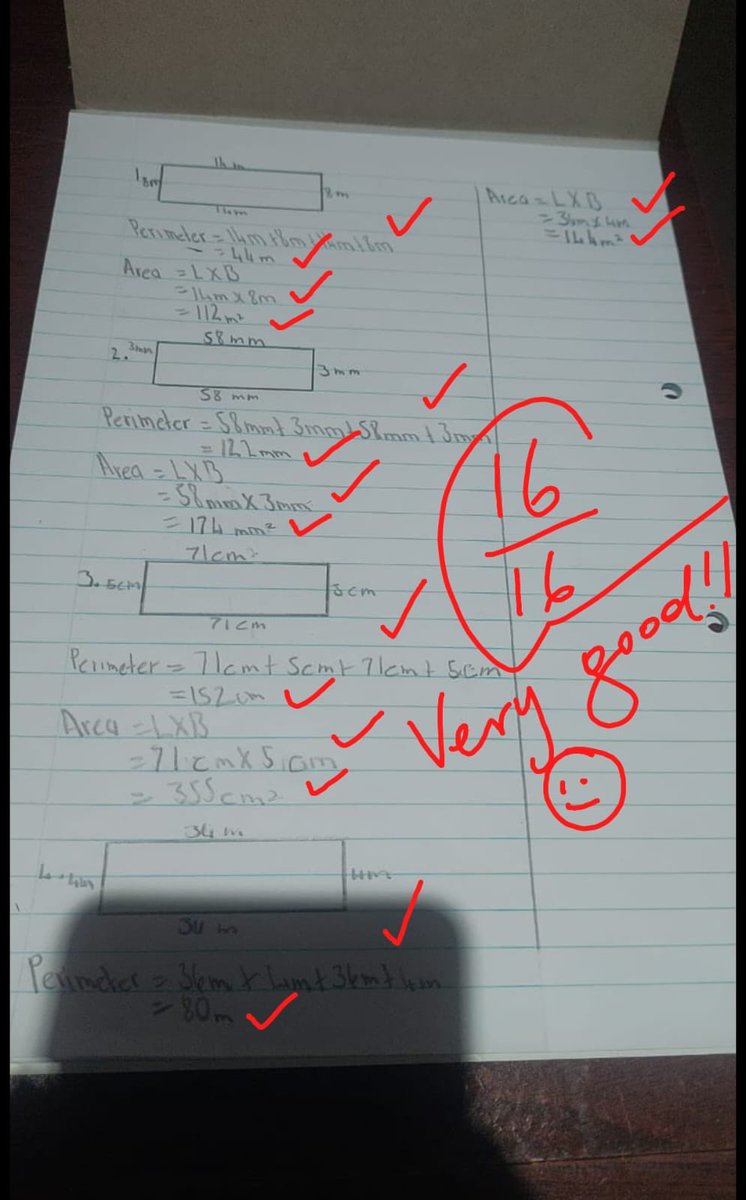 14m
1. 8m 8m
14m
Perimeter = 14m+8m+14m+8m
= 44m
Area = LXB
= 14m x 8m
= 112m²
58 mm
2. 3mm 3mm
58 mm
Perimeter = 58mm+ 3mm+58mm+3mm
= 122mm
Area = LXB
= 58mm X 3mm
= 174 mm²
71cm
3. 5cm 5cm
71cm
Perimeter = 71cm+ 5cm+ 71cm+ 5cm
=152cm
Area = LXB
=71cm X 5cm
= 355cm²
36 m
4. 4m 4m
Perimeter = 36m + 4m+36m+4m
= 80m
Area = LXB
= 36m x 4m
= 144m²
16
16
Very good!!